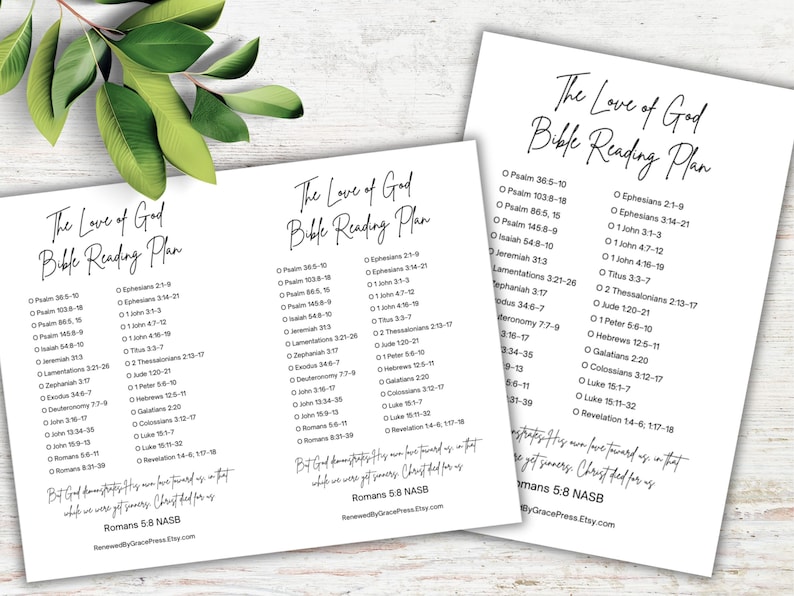 The Love of God
Bible Reading Plan
O Psalm 36:5–10
O Psalm 103:8–18
O Psalm 86:5, 15
O Psalm 145:8–9
O Isaiah 54:8–10
O Jeremiah 31:3
O Lamentations 3:21–26
O Zephaniah 3:17
O Exodus 34:6–7
O Deuteronomy 7:7–9
O John 3:16–17
O John 13:34–35
O John 15:9–13
O Romans 5:6–11
O Romans 8:31–39
O Ephesians 2:1–9
O Ephesians 3:14–21
O 1 John 3:1–3
O 1 John 4:7–12
O 1 John 4:16–19
O Titus 3:3–7
O 2 Thessalonians 2:13–17
O Jude 1:20–21
O 1 Peter 5:6–10
O Hebrews 12:5–11
O Galatians 2:20
O Colossians 3:12–17
O Luke 15:1–7
O Luke 15:11–32
O Revelation 1:4–6; 1:17–18
But God demonstrates His own love toward us, in that
while we were yet sinners, Christ died for us.
Romans 5:8 NASB
RenewedByGracePress.Etsy.com
The Love of God
Bible Reading Plan
O Psalm 36:5–10
O Psalm 103:8–18
O Psalm 86:5, 15
O Psalm 145:8–9
O Isaiah 54:8–10
O Jeremiah 31:3
O Lamentations 3:21–26
O Zephaniah 3:17
O Exodus 34:6–7
O Deuteronomy 7:7–9
O John 3:16–17
O John 13:34–35
O John 15:9–13
O Romans 5:6–11
O Romans 8:31–39
O Ephesians 2:1–9
O Ephesians 3:14–21
O 1 John 3:1–3
O 1 John 4:7–12
O 1 John 4:16–19
O Titus 3:3–7
O 2 Thessalonians 2:13–17
O Jude 1:20–21
O 1 Peter 5:6–10
O Hebrews 12:5–11
O Galatians 2:20
O Colossians 3:12–17
O Luke 15:1–7
O Luke 15:11–32
O Revelation 1:4–6; 1:17–18
But God demonstrates His own love toward us, in that
while we were yet sinners, Christ died for us.
Romans 5:8 NASB
RenewedByGracePress.Etsy.com
The Love of God
Bible Reading Plan
O Psalm 36:5–10
O Psalm 103:8–18
O Psalm 86:5, 15
O Psalm 145:8–9
O Isaiah 54:8–10
Jeremiah 31:3
Lamentations 3:21–26
Zephaniah 3:17
34:6–7
7:7–9
3:16–17
O Ephesians 2:1–9
O Ephesians 3:14–21
O 1 John 3:1–3
O 1 John 4:7–12
O 1 John 4:16–19
O Titus 3:3–7
O 2 Thessalonians 2:13–17
O Jude 1:20–21
O 1 Peter 5:6–10
O Hebrews 12:5–11
O Galatians 2:20
O Colossians 3:12–17
O Luke 15:1–7
O Luke 15:11–32
O Revelation 1:4–6; 1:17–18
His own love toward us, in that
were yet sinners, Christ died for us.
Romans 5:8 NASB
RenewedByGracePress.Etsy.com